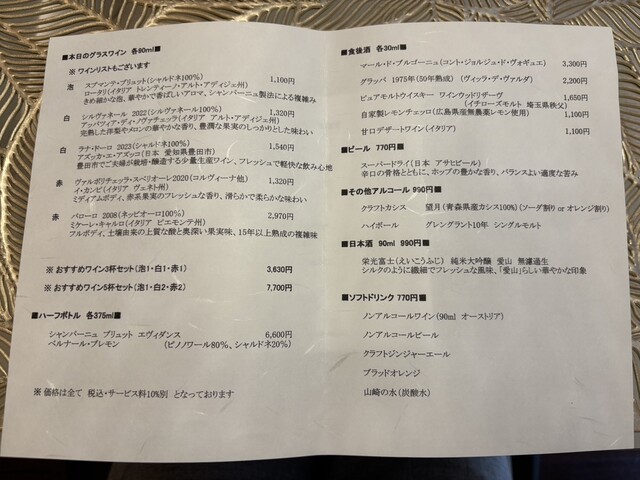 ■本日のグラスワイン 各90ml■
※ ワインリストもございます
泡 スプマンテ・ブリュット(シャルドネ100%) 1,100円
ロータリ(イタリア トレンティーノ・アルト・アディジェ州)
きめ細かな泡、華やかで香ばしいアロマ、シャンパーニュ製法による複雑み
白 シルヴァネール 2022(シルヴァネール100%) 1,320円
アッバツィア・ディ・ノヴァチェッラ(イタリア アルト・アディジェ州)
完熟した洋梨やメロンの華やかな香り、豊潤な果実のしっかりとした味わい
白 ラナ・ドーロ 2023(シャルドネ100%) 1,540円
アズッカ・エ・アズッコ(日本 愛知県豊田市)
豊田市でご夫婦が栽培・醸造する少量生産ワイン、フレッシュで軽快な飲み心地
赤 ヴァルポリチェッラ・スペリオーレ2020(コルヴィーナ他) 1,320円
イ・カンピ(イタリア ヴェネト州)
ミディアムボディ、赤系果実のフレッシュな香り、滑らかで柔らかな味わい
赤 バローロ 2008(ネッビオーロ100%) 2,970円
ミケーレ・キャルロ(イタリア ピエモンテ州)
フルボディ、土壌由来の上質な酸と奥深い果実味、15年以上熟成の複雑味
※ おすすめワイン3杯セット(泡1・白1・赤1) 3,630円
※ おすすめワイン5杯セット(泡1・白2・赤2) 7,700円
■ハーフボトル 各375ml■
シャンパーニュ ブリュット エヴィダンス 6,600円
ベルナール・ブレモン (ピノノワール80%、シャルドネ20%)
※ 価格は全て 税込・サービス料10%別 となっております
■食後酒 各30ml■
マール・ド・ブルゴーニュ(コント・ジョルジュ・ド・ヴォギュエ) 3,300円
グラッパ 1975年(50年熟成) (ヴィッラ・デ・ヴァルダ) 2,200円
ピュアモルトウイスキー ワインウッドリザーヴ 1,650円
(イチローズモルト 埼玉県秩父)
自家製レモンチェッロ(広島県産無農薬レモン使用) 1,100円
甘口デザートワイン(イタリア) 1,100円
■ビール 770円■
スーパードライ(日本 アサヒビール)
辛口の骨格とともに、ホップの豊かな香り、バランスよい適度な苦み
■その他アルコール 990円■
クラフトカシス 望月(青森県産カシス100%)(ソーダ割り or オレンジ割り)
ハイボール グレングラント10年 シングルモルト
■日本酒 90ml 990円■
栄光冨士(えいこうふじ) 純米大吟醸 愛山 無濾過生
シルクのように繊細でフレッシュな風味、「愛山」らしい華やかな印象
■ソフトドリンク 770円■
ノンアルコールワイン(90ml オーストリア)
ノンアルコールビール
クラフトジンジャーエール
ブラッドオレンジ
山崎の水(炭酸水)